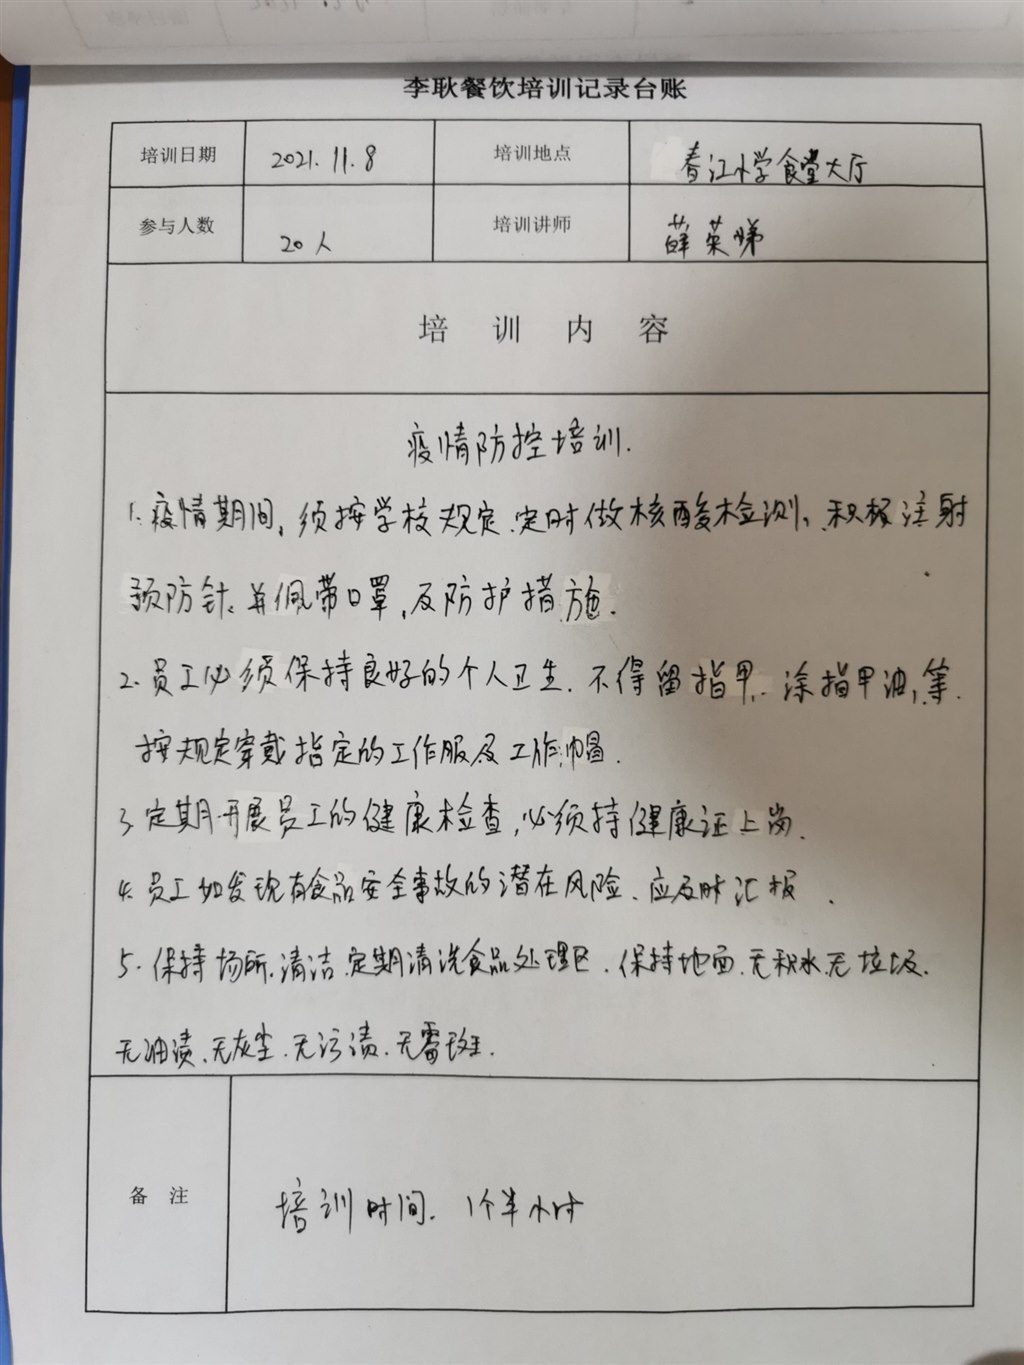 李耿餐饮培训记录台账
培训日期 2021.11.8 培训地点 春江小学食堂大厅
参与人数 20人 培训讲师 薛菜娣
培训内容
疫情防控培训.
1.疫情期间,须按学校规定.定时做核酸检测,积极注射
预防针.并佩带口罩,及防护措施.
2.员工必须保持良好的个人卫生.不得留指甲.涂指甲油,等.
按规定穿戴指定的工作服及工作帽.
3.定期开展员工的健康检查,必须持健康证上岗.
4.员工如发现有食品安全事故的潜在风险.应及时汇报.
5.保持场所.清洁.定期清洗食品处理区.保持地面.无积水.无垃圾.
无油渍.无灰尘.无污渍.无霉斑.
备注 培训时间.1个半小时